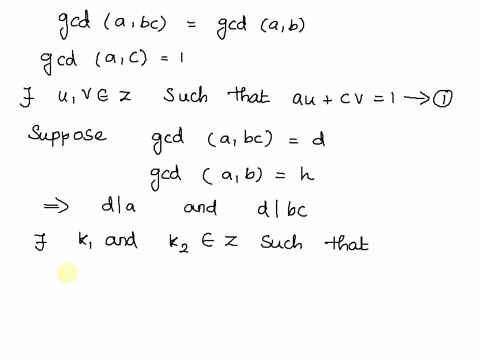 gcd (a, bc) = gcd (a, b)
gcd (a, c) = 1
∃ u, v ∈ z Such that au + cv = 1 → ①
Suppose gcd (a, bc) = d
gcd (a, b) = h
⇒ d|a and d|bc
∃ k₁ and k₂ ∈ z Such that